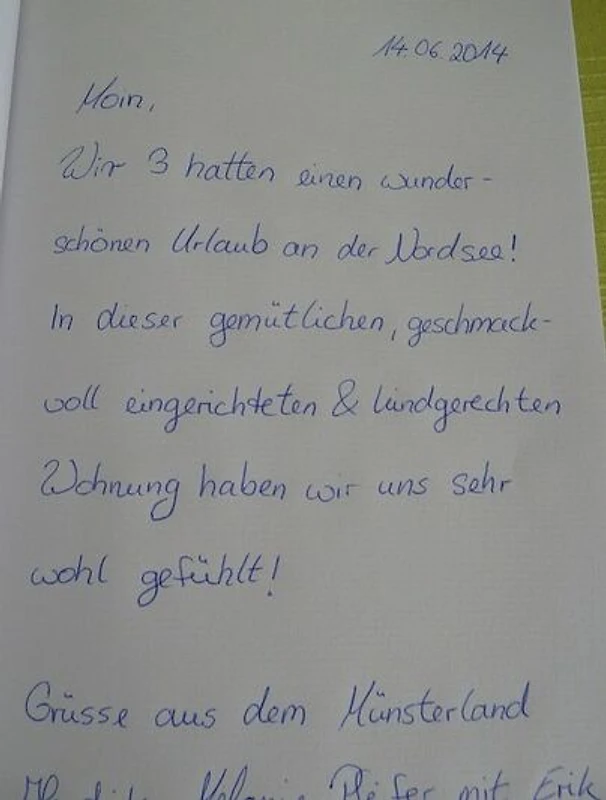 14.06.2014
Moin,
Wir 3 hatten einen wunder-
schönen Urlaub an der Nordsee!
In dieser gemütlichen, geschmack-
voll eingerichteten & kindgerechten
Wohnung haben wir uns sehr
wohl gefühlt!
Grüsse aus dem Münsterland
mit Erik